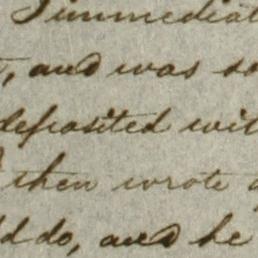 Immediat
, and was so
deposited wit
then wrote a
ld do, and he